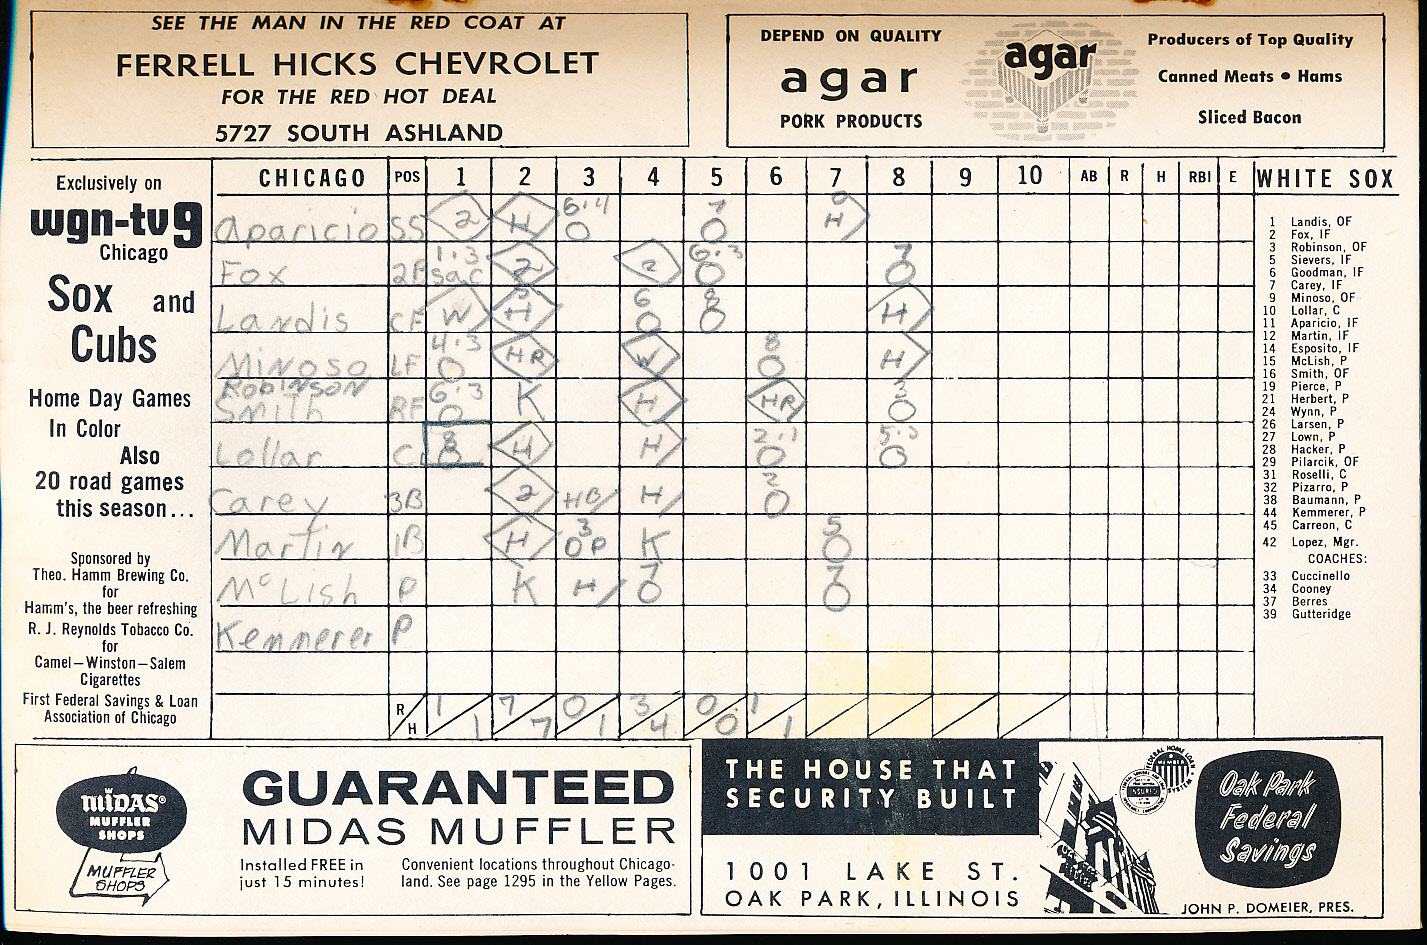 SEE THE MAN IN THE RED COAT AT
FERRELL HICKS CHEVROLET
FOR THE RED HOT DEAL
5727 SOUTH ASHLAND
DEPEND ON QUALITY
agar
PORK PRODUCTS
agar
Producers of Top Quality
Canned Meats • Hams
Sliced Bacon
Exclusively on
wgn-tv 9
Chicago
Sox and
Cubs
Home Day Games
In Color
Also
20 road games
this season...
Sponsored by
Theo. Hamm Brewing Co.
for
Hamm's, the beer refreshing
R. J. Reynolds Tobacco Co.
for
Camel—Winston—Salem
Cigarettes
First Federal Savings & Loan
Association of Chicago
CHICAGO POS 1 2 3 4 5 6 7 8 9 10 AB R H RBI E
Aparicio SS 2 H 6·4 O 7 O 9 H
Fox 2B 1·3 sac 2 2 6·3 O 7 O
Landis CF W H 6 O 8 O H
Minoso LF 4·3 O HR W 8 O H
Robinson
Smith RF 6·3 O K H HR O
Lollar C 8 O H H 2·1 O 5·3 O
Carey 3B 2 HB H 2 O
Martin 1B H 3 OP K 5 O
McLish P K H 7 O 7 O
Kemmerer P
R/H 1/1 7/7 0/1 3/4 0/0 1/1
WHITE SOX
1 Landis, OF
2 Fox, IF
3 Robinson, OF
5 Sievers, IF
6 Goodman, IF
7 Carey, IF
9 Minoso, OF
10 Lollar, C
11 Aparicio, IF
12 Martin, IF
14 Esposito, IF
15 McLish, P
16 Smith, OF
19 Pierce, P
21 Herbert, P
24 Wynn, P
26 Larsen, P
27 Lown, P
28 Hacker, P
29 Pilarcik, OF
31 Roselli, C
32 Pizarro, P
38 Baumann, P
44 Kemmerer, P
45 Carreon, C
42 Lopez, Mgr.
COACHES:
33 Cuccinello
34 Cooney
37 Berres
39 Gutteridge
MIDAS®
MUFFLER
SHOPS
MUFFLER
SHOPS
GUARANTEED
MIDAS MUFFLER
Installed FREE in
just 15 minutes!
Convenient locations throughout Chicago-
land. See page 1295 in the Yellow Pages.
THE HOUSE THAT
SECURITY BUILT
1001 LAKE ST.
OAK PARK, ILLINOIS
Oak Park
Federal
Savings
JOHN P. DOMEIER, PRES.